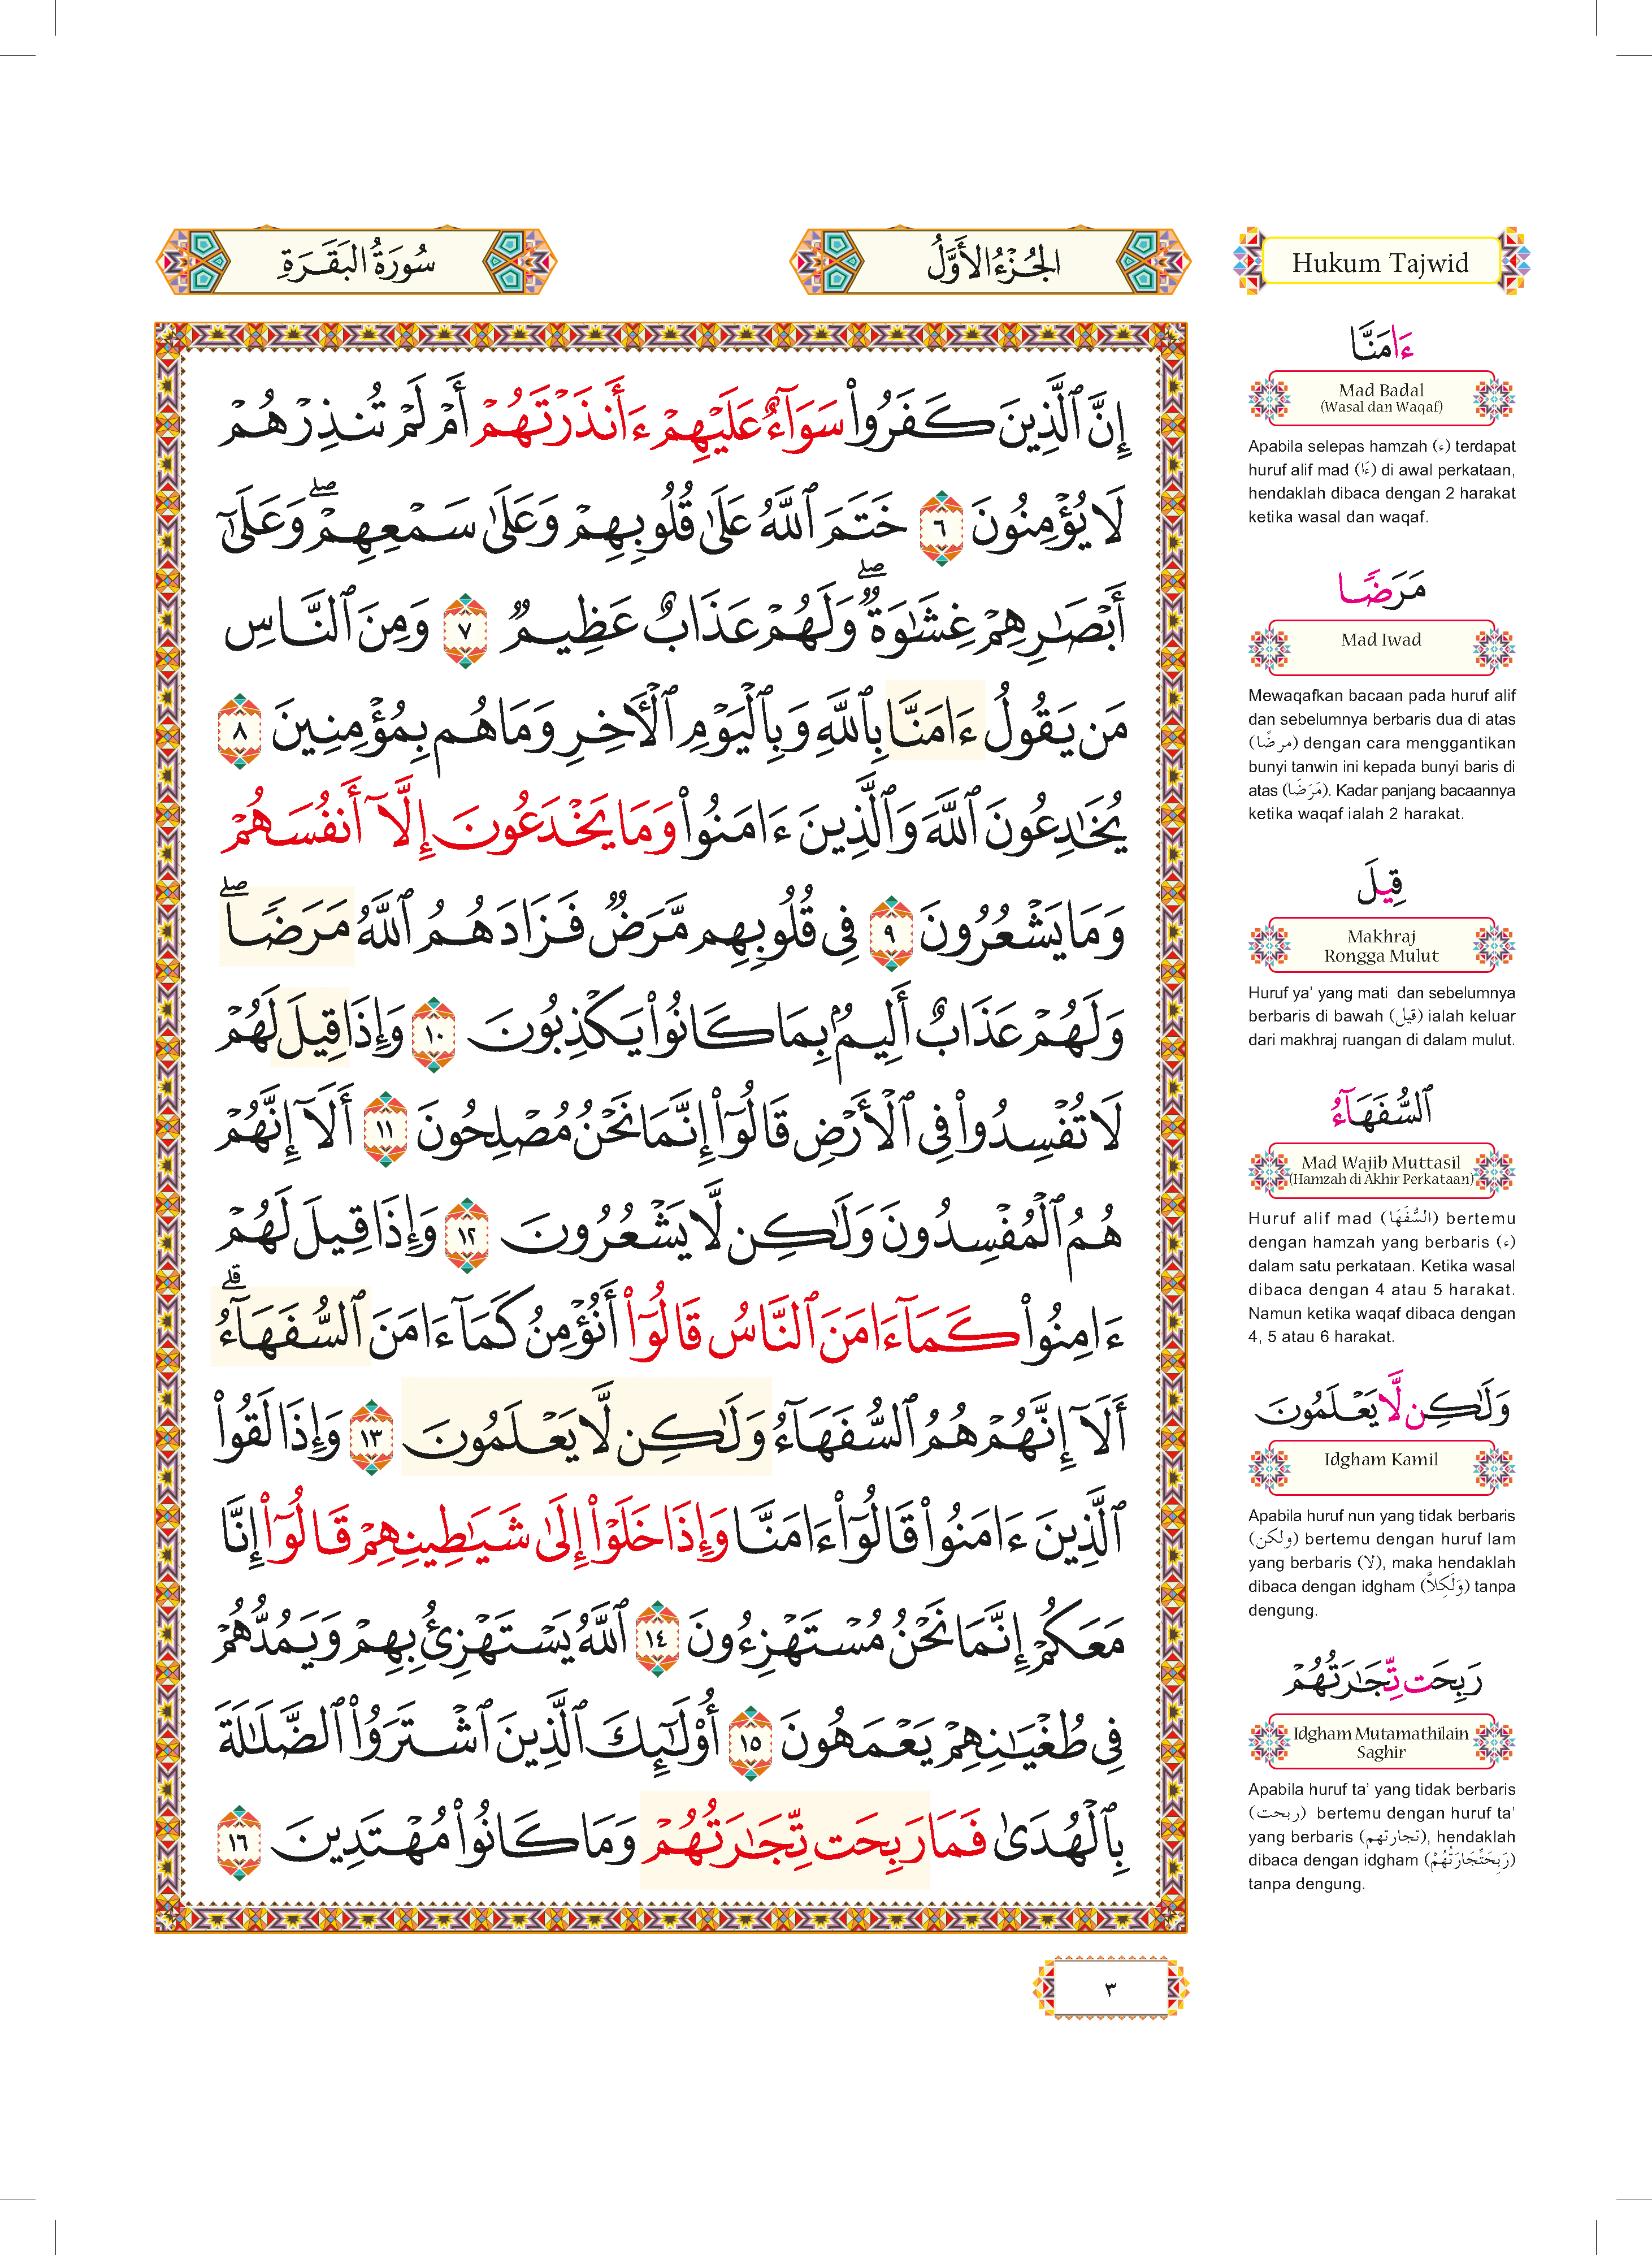 سُورَةُ البَقَرَةِ
الجُزْءُ الأَوَّلُ
إِنَّ ٱلَّذِينَ كَفَرُوا۟ سَوَآءٌ عَلَيْهِمْ ءَأَنذَرْتَهُمْ أَمْ لَمْ تُنذِرْهُمْ
لَا يُؤْمِنُونَ ٦ خَتَمَ ٱللَّهُ عَلَىٰ قُلُوبِهِمْ وَعَلَىٰ سَمْعِهِمْ ۖ وَعَلَىٰٓ
أَبْصَـٰرِهِمْ غِشَـٰوَةٌ ۖ وَلَهُمْ عَذَابٌ عَظِيمٌ ٧ وَمِنَ ٱلنَّاسِ
مَن يَقُولُ ءَامَنَّا بِٱللَّهِ وَبِٱلْيَوْمِ ٱلْـَٔاخِرِ وَمَا هُم بِمُؤْمِنِينَ ٨
يُخَـٰدِعُونَ ٱللَّهَ وَٱلَّذِينَ ءَامَنُوا۟ وَمَا يَخْدَعُونَ إِلَّآ أَنفُسَهُمْ
وَمَا يَشْعُرُونَ ٩ فِى قُلُوبِهِم مَّرَضٌ فَزَادَهُمُ ٱللَّهُ مَرَضًا ۖ
وَلَهُمْ عَذَابٌ أَلِيمٌۢ بِمَا كَانُوا۟ يَكْذِبُونَ ١٠ وَإِذَا قِيلَ لَهُمْ
لَا تُفْسِدُوا۟ فِى ٱلْأَرْضِ قَالُوٓا۟ إِنَّمَا نَحْنُ مُصْلِحُونَ ١١ أَلَآ إِنَّهُمْ
هُمُ ٱلْمُفْسِدُونَ وَلَـٰكِن لَّا يَشْعُرُونَ ١٢ وَإِذَا قِيلَ لَهُمْ
ءَامِنُوا۟ كَمَآ ءَامَنَ ٱلنَّاسُ قَالُوٓا۟ أَنُؤْمِنُ كَمَآ ءَامَنَ ٱلسُّفَهَآءُ ۗ
أَلَآ إِنَّهُمْ هُمُ ٱلسُّفَهَآءُ وَلَـٰكِن لَّا يَعْلَمُونَ ١٣ وَإِذَا لَقُوا۟
ٱلَّذِينَ ءَامَنُوا۟ قَالُوٓا۟ ءَامَنَّا وَإِذَا خَلَوْا۟ إِلَىٰ شَيَـٰطِينِهِمْ قَالُوٓا۟ إِنَّا
مَعَكُمْ إِنَّمَا نَحْنُ مُسْتَهْزِءُونَ ١٤ ٱللَّهُ يَسْتَهْزِئُ بِهِمْ وَيَمُدُّهُمْ
فِى طُغْيَـٰنِهِمْ يَعْمَهُونَ ١٥ أُو۟لَـٰٓئِكَ ٱلَّذِينَ ٱشْتَرَوُا۟ ٱلضَّلَـٰلَةَ
بِٱلْهُدَىٰ فَمَا رَبِحَت تِّجَـٰرَتُهُمْ وَمَا كَانُوا۟ مُهْتَدِينَ ١٦
٣
Hukum Tajwid
ءَامَنَّا
Mad Badal
(Wasal dan Waqaf)
Apabila selepas hamzah (ء) terdapat
huruf alif mad (ءَا) di awal perkataan,
hendaklah dibaca dengan 2 harakat
ketika wasal dan waqaf.
مَرَضًا
Mad Iwad
Mewaqafkan bacaan pada huruf alif
dan sebelumnya berbaris dua di atas
(مرضًا) dengan cara menggantikan
bunyi tanwin ini kepada bunyi baris di
atas (مَرَضَا). Kadar panjang bacaannya
ketika waqaf ialah 2 harakat.
قِيلَ
Makhraj
Rongga Mulut
Huruf ya’ yang mati dan sebelumnya
berbaris di bawah (قيل) ialah keluar
dari makhraj ruangan di dalam mulut.
ٱلسُّفَهَآءُ
Mad Wajib Muttasil
(Hamzah di Akhir Perkataan)
Huruf alif mad (السُّفَهَا) bertemu
dengan hamzah yang berbaris (ء)
dalam satu perkataan. Ketika wasal
dibaca dengan 4 atau 5 harakat.
Namun ketika waqaf dibaca dengan
4, 5 atau 6 harakat.
وَلَـٰكِن لَّا يَعْلَمُونَ
Idgham Kamil
Apabila huruf nun yang tidak berbaris
(ولكن) bertemu dengan huruf lam
yang berbaris (لا), maka hendaklah
dibaca dengan idgham (وَلَكِلاَّ) tanpa
dengung.
رَبِحَت تِّجَـٰرَتُهُمْ
Idgham Mutamathilain
Saghir
Apabila huruf ta’ yang tidak berbaris
(ربحت) bertemu dengan huruf ta’
yang berbaris (تجارتهم), hendaklah
dibaca dengan idgham (رَبِحَتِّجَارَتُهُمْ)
tanpa dengung.